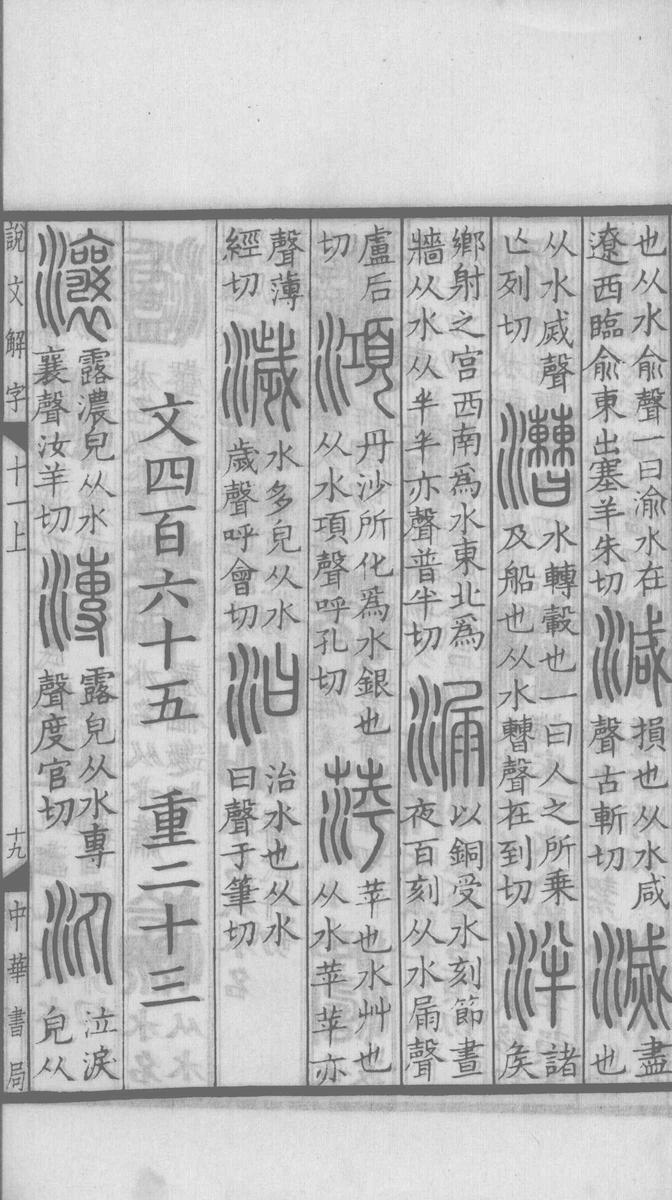 也从水俞聲一曰渝水在遼西臨俞東出塞羊朱切減損也从水咸聲古斬切滅盡也
从水烕聲亾列切漕水轉轂也一曰人之所乗及船也从水𣍘聲在到切泮諸矦
鄉射之宫西南爲水東北爲牆从水从半半亦聲普半切漏以銅受水刻節晝夜百刻从水屚聲
盧后切澒丹沙所化爲水銀也从水項聲呼孔切萍苹也水艸也从水苹苹亦
聲薄經切濊水多皃从水歲聲呼會切汨治水也从水曰聲于筆切
文四百六十五 重二十三
瀼露濃皃从水襄聲汝羊切漙露皃从水專聲度官切汍泣淚皃从
說文解字 十一上 十九 中華書局